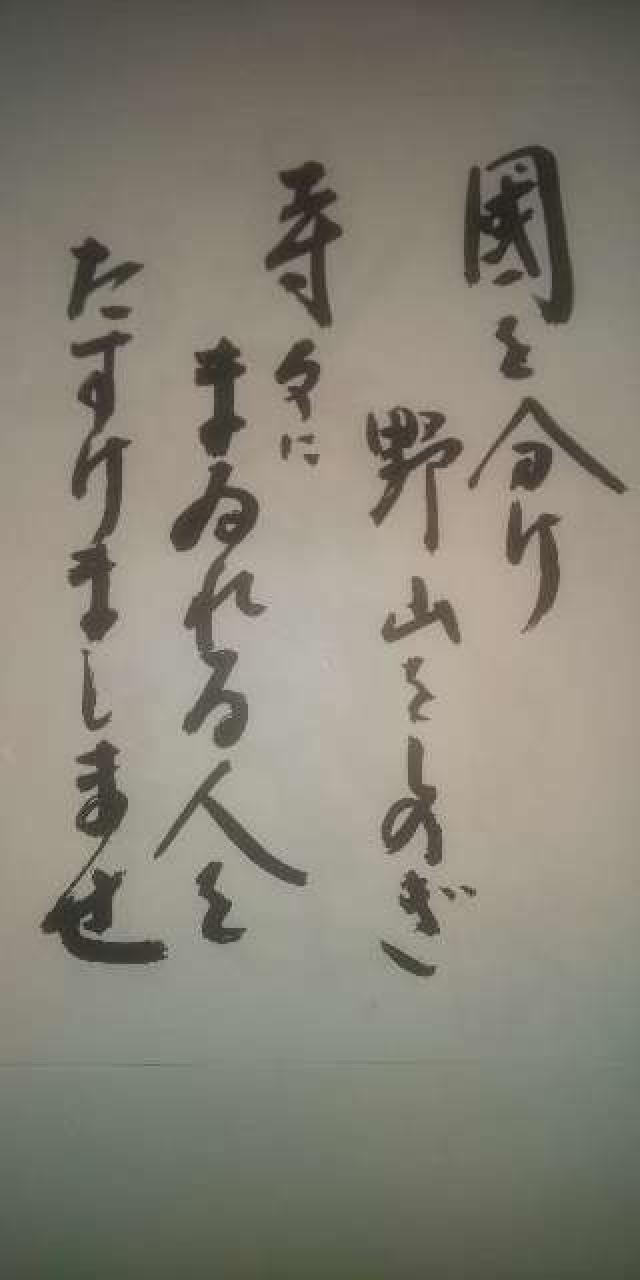 國を分け
野山をしのぎ
寺々に
まゐれる人を
たすけましませ